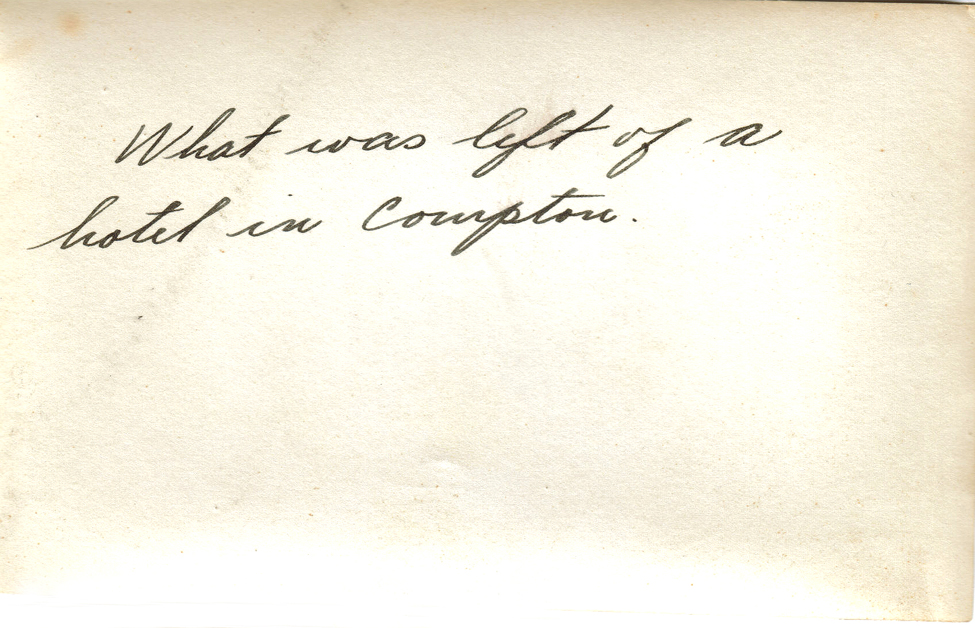 What was left of a
hotel in Compton.